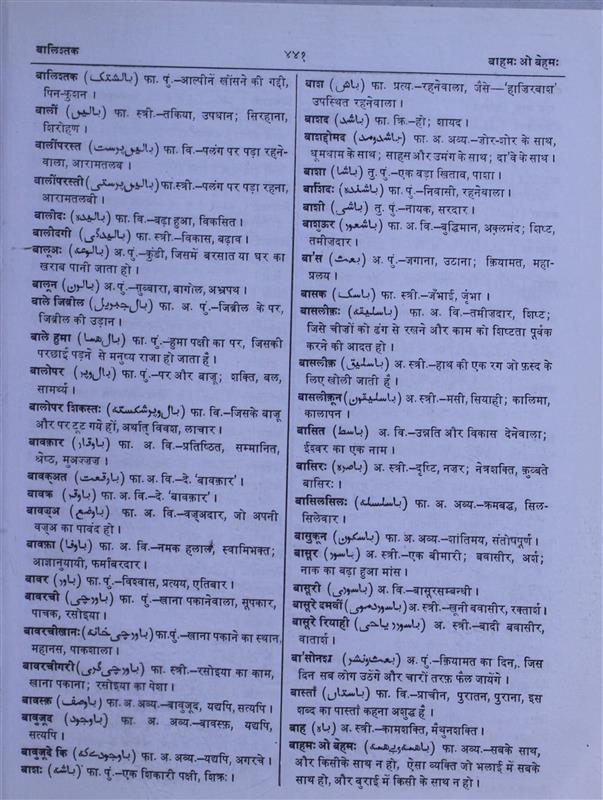 बालिश्तक
४४१
बाहमः ओ बेहमः
बालिश्तक (بالشتک) फा. पुं.-आल्पीनें खोंसने की गद्दी,
पिन-कुशन ।
बालीं (بالیں) फा. स्त्री.-तकिया, उपधान; सिरहाना,
शिरोहण ।
बालींपरस्त (بالیں پرست) फा. वि.-पलंग पर पड़ा रहने-
वाला, आरामतलब ।
बालींपरस्ती (بالیں پرستی) फा.स्त्री.-पलंग पर पड़ा रहना,
आरामतलबी ।
बालीदः (بالیدہ) फा. वि.-बढ़ा हुआ, विकसित ।
बालीदगी (بالیدگی) फा. स्त्री.-विकास, बढ़ाव ।
बालूअः (بالوعہ) अ. पुं.-कुंडी, जिसमें बरसात या घर का
खराब पानी जाता हो ।
बालून (بالون) अ. पुं.-गुब्बारा, बागोल, अभ्रपथ ।
बाले जिब्रील (بال جبریل) फा. अ. पुं.-जिब्रील के पर,
जिब्रील की उड़ान ।
बाले हुमा (بال ھما) फा. पुं.-हुमा पक्षी का पर, जिसकी
परछाईं पड़ने से मनुष्य राजा हो जाता है ।
बालोपर (بال و پر) फा. पुं.-पर और बाजू; शक्ति, बल,
सामर्थ्य ।
बालोपर शिकस्तः (بال و پر شکستہ) फा. वि.-जिसके बाजू
और पर टूट गये हों, अर्थात् विवश, लाचार ।
बावक़ार (باوقار) फा. अ. वि.-प्रतिष्ठित, सम्मानित,
श्रेष्ठ, मुअज़्ज़ज़ ।
बावक़्अत (باوقعت) फा. अ. वि.-दे. 'बावक़ार' ।
बावक़्र (باوقر) फा. अ. वि.-दे. 'बावक़ार' ।
बावज़्अ (باوضع) फा. अ. वि.-वज़्अदार, जो अपनी
वज़्अ का पाबंद हो ।
बावफ़ा (باوفا) फा. अ. वि.-नमक हलाल, स्वामिभक्त;
आज्ञानुयायी, फर्माबरदार ।
बावर (باور) फा. पुं.-विश्वास, प्रत्यय, एतिबार ।
बावरची (باورچی) फा. पुं.-खाना पकानेवाला, सूपकार,
पाचक, रसोइया ।
बावरचीखानः (باورچی خانہ) फा.पुं.-खाना पकाने का स्थान,
महानस, पाकशाला ।
बावरचीगरी (باورچی گری) फा. स्त्री.-रसोइया का काम,
खाना पकाना; रसोइया का पेशा ।
बावस्फ़ (باوصف) फा. अ. अव्य.-बावुजूद, यद्यपि, सत्यपि ।
बावुजूद (باوجود) फा. अ. अव्य.-बावस्फ़, यद्यपि,
सत्यपि ।
बावुजूदे कि (باوجودے کہ) फा. अ. अव्य.-यद्यपि, अगरचे ।
बाशः (باشہ) फा. पुं.-एक शिकारी पक्षी, शिक्रः ।
बाश (باش) फा. प्रत्य.-रहनेवाला, जैसे—'हाज़िरबाश'
उपस्थित रहनेवाला ।
बाशद (باشد) फा. क्रि.-हो; शायद ।
बाशद्दोमद (باشدومد) फा. अ. अव्य.-ज़ोर-शोर के साथ,
धूमधाम के साथ; साहस और उमंग के साथ; दा'वे के साथ ।
बाशा (باشا) तु. पुं.-एक बड़ा ख़िताब, पाशा ।
बाशिंदः (باشندہ) फा. पुं.-निवासी, रहनेवाला ।
बाशी (باشی) तु. पुं.-नायक, सरदार ।
बाशुऊर (باشعور) फा. अ. वि.-बुद्धिमान, अक़्लमंद; शिष्ट,
तमीज़दार ।
बा'स (بعث) अ. पुं.-जगाना, उठाना; क़ियामत, महा-
प्रलय ।
बासक (باسک) फा. स्त्री.-जँभाई, जृंभा ।
बासलीक़ः (باسلیقہ) फा. अ. वि.-तमीज़दार, शिष्ट;
जिसे चीज़ों को ढंग से रखने और काम को शिष्टता पूर्वक
करने की आदत हो ।
बासलीक़ (باسلیق) अ. स्त्री.-हाथ की एक रग जो फ़स्द के
लिए खोली जाती है ।
बासलीक़ून (باسلیقون) अ. स्त्री.-मसी, सियाही; कालिमा,
कालापन ।
बासित (باسط) अ. वि.-उन्नति और विकास देनेवाला;
ईश्वर का एक नाम ।
बासिरः (باصرہ) अ. स्त्री.-दृष्टि, नजर; नेत्रशक्ति, क़ुव्वते
बासिरः ।
बासिलसिलः (باسلسلہ) फा. अ. अव्य.-क्रमबद्ध, सिल-
सिलेवार ।
बासुकून (باسکون) फा. अ. अव्य.-शांतिमय, संतोषपूर्ण ।
बासूर (باسور) अ. स्त्री.-एक बीमारी; बवासीर, अर्श;
नाक का बढ़ा हुआ मांस ।
बासूरी (باسوری) अ. वि.-बासूरसम्बन्धी ।
बासूरे दमवीं (باسور دموی) अ. स्त्री.-खूनी बवासीर, रक्तार्श ।
बासूरे रियाही (باسور ریاحی) अ. स्त्री.-बादी बवासीर,
वातार्श ।
बा'सोनश्र (بعث و نشر) अ. पुं.-क़ियामत का दिन, जिस
दिन सब लोग उठेंगे और चारों तरफ़ फैल जायेंगे ।
बास्ताँ (باستاں) फा. वि.-प्राचीन, पुरातन, पुराना, इस
शब्द का पास्ताँ कहना अशुद्ध है ।
बाह (باہ) अ. स्त्री.-कामशक्ति, मैथुनशक्ति ।
बाहमः ओ बेहमः (باھمہ وبےھمہ) फा. अव्य.-सबके साथ,
और किसीके साथ न हो, ऐसा व्यक्ति जो भलाई में सबके
साथ हो, और बुराई में किसी के साथ न हो ।